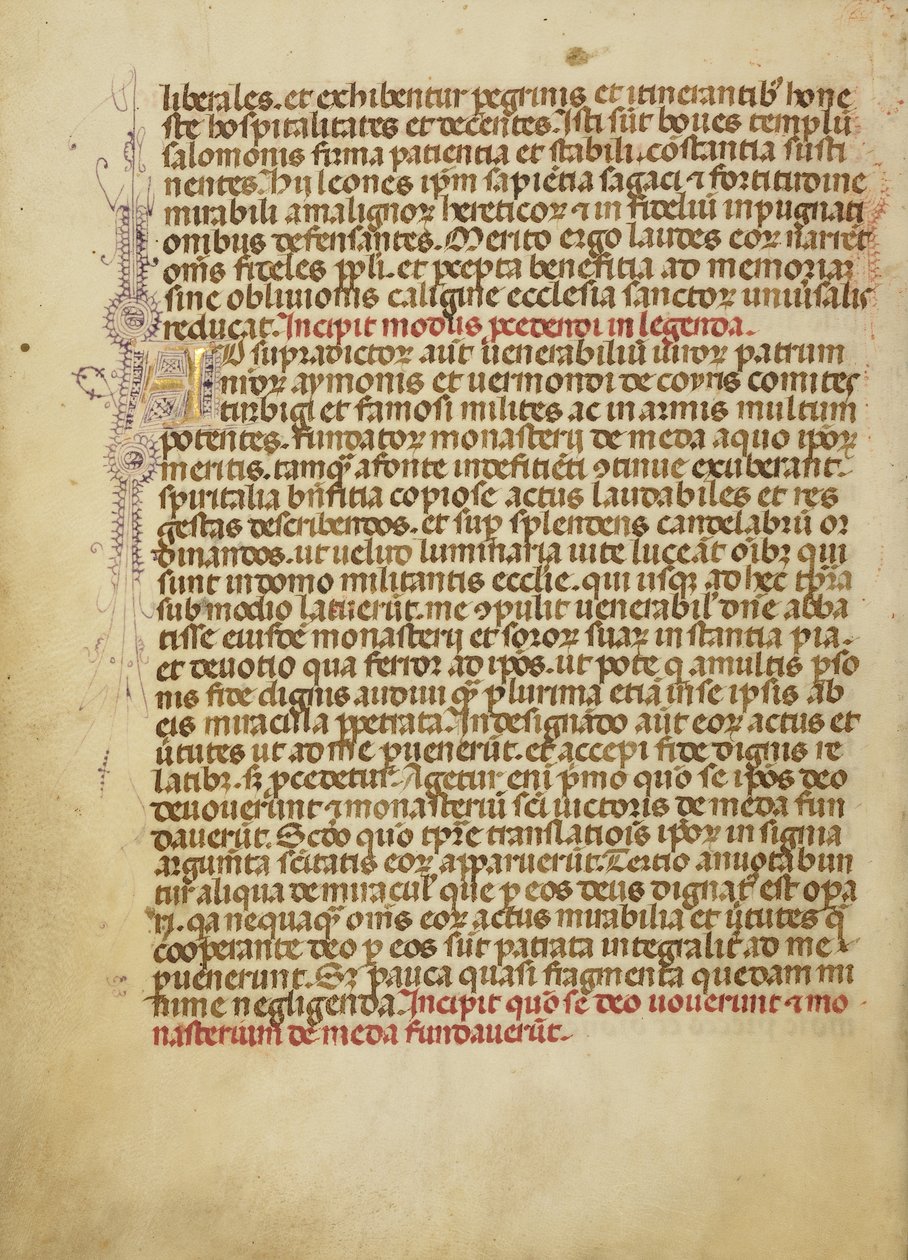 liberales. et exhibentur pegrinis et itinerantib' hone
ste hospitalitates et decentes. Isti sūt boves templū
salomonis firma patientia et stabili. cōstantia susti
nentes. Hij leones ip̄m sapiētia sagaci ⁊ fortitudine
mirabili a malignoꝝ hereticoꝝ ⁊ infideliū inpugnati
onibus defensantes. Merito ergo laudes eoꝝ narrēt
om̄s fideles ppl̄i. et pcepta benefitia ad memoriaꝝ
sine oblivionis caligine ecclesia sanctoꝝ univ̄salis
reducat. Incipit modus pcedendi in legenda.
AD supradictoꝝ aūt venerabiliū viroꝝ patrum
nr̄oꝝ aymonis et vermondi de coyris comites
turbigi et famosi milites ac in armis multum
potentes. fundatoꝝ monasterij de meda a quo ip̄oꝝ
meritis. tamqꝫ a fonte indefitiēti ꝯtinue exuberant.
spiritalia bn̄fitia copiose actus laudabiles et res
gestas describendos. et sup splendens candelabrū or
dinandos. ut velud luminaria vite luceāt oībꝫ qui
sunt in domo militantis eccl̄ie. qui usqꝫ ad hec tp̄ra
sub modio latuerūt. me ꝯpulit venerabil' dn̄e abba
tisse eiusdē monasterij et soroꝝ suaꝝ instantia pia.
et devotio qua feror ad ip̄os. ut pote q̄ a multis pso
nis fide dignis audivi qꝫ plurima etiā in se ipsis ab
eis miracula ppetrata. In designādo aūt eoꝝ actus et
v̄tutes ut ad me pvenerūt. et accepi fide dignis re
latibꝫ. sꝫ pcedetur. Agetur eni p̄mo quō se ip̄os deo
devoverunt ⁊ monasteriū sc̄i victoris de meda fun
daverūt. Scd̄o quō tp̄re translatiois ip̄oꝝ insignia
argum̄ta sc̄itatis eoꝝ apparuerūt. Tertio annotabun
tur aliqua de miracul' que p eos deus dignat' est opa
ri. qa nequaqꝫ om̄s eoꝝ actus mirabilia et v̄tutes q̄
cooperante deo p eos sūt patrata integralit' ad me
pvenerunt. Sꝫ pauca quasi fragmenta quedam mi
nime negligenda. Incipit quō se deo voverunt ⁊ mo
nasterium de meda fundaverūt.